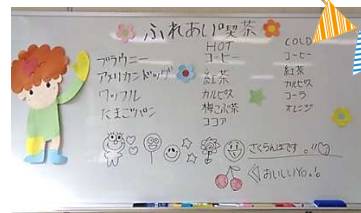 ふれあい喫茶
ブラウニー
アメリカンドッグ
ワッフル
たまごパン
HOT
コーヒー
紅茶
カルピス
梅こぶ茶
ココア
COLD
コーヒー
紅茶
カルピス
コーラ
オレンジ
さくらんぼです。!!
おいしいYo!。